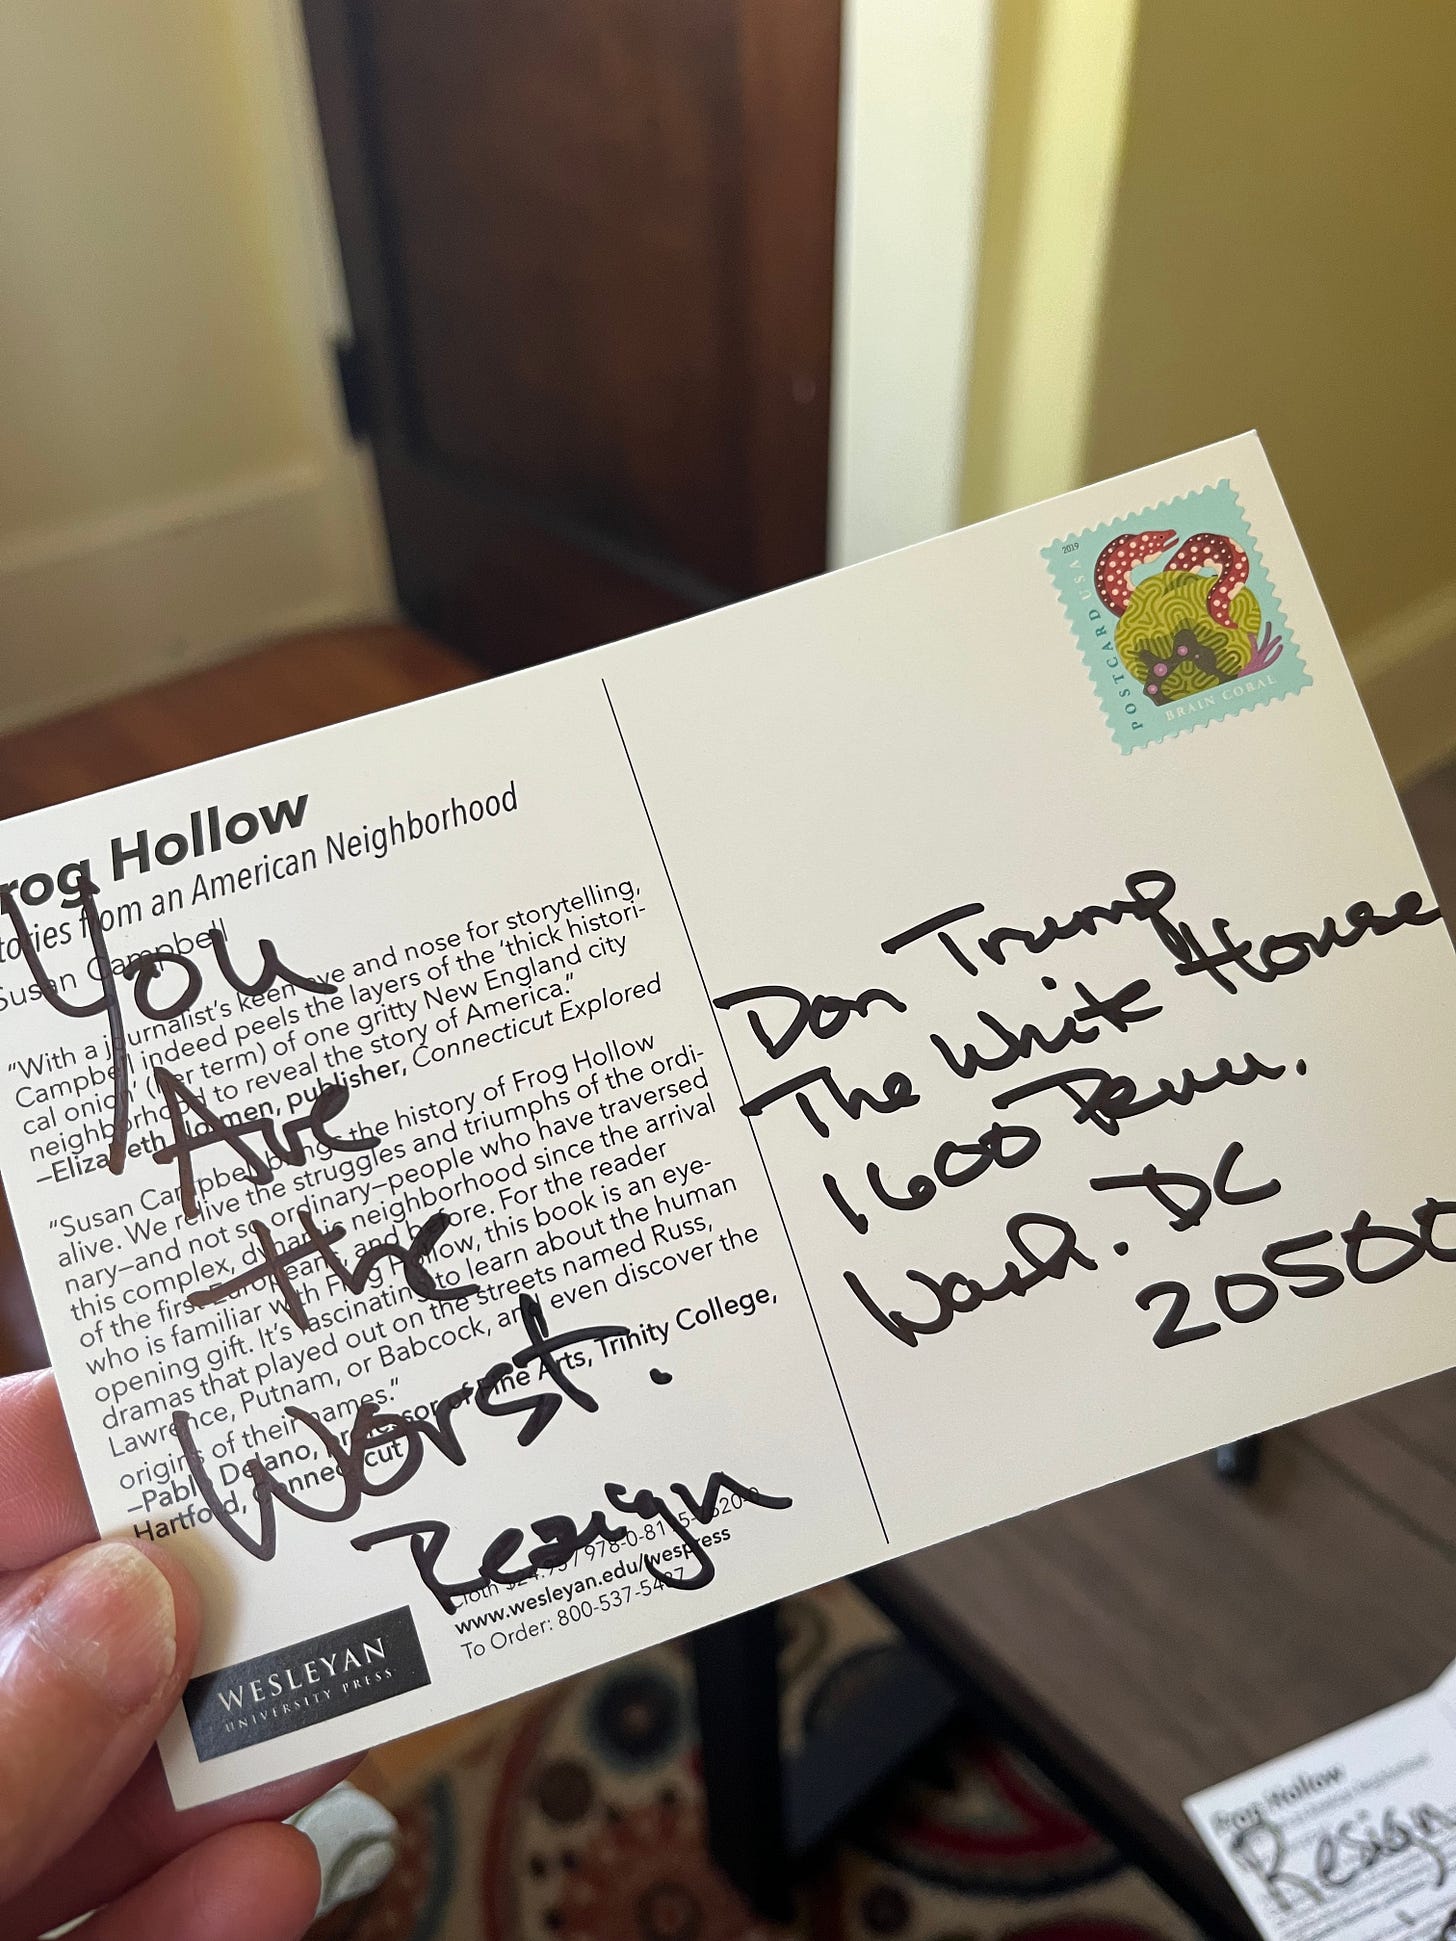 rog Hollow
tories from an American Neighborhood
Susan Campbell
"With a journalist's keen eye and nose for storytelling,
Campbell indeed peels the layers of the 'thick histori-
cal onion' (her term) of one gritty New England city
neighborhood to reveal the story of America."
–Elizabeth Normen, publisher, Connecticut Explored
"Susan Campbell brings the history of Frog Hollow
alive. We relive the struggles and triumphs of the ordi-
nary–and not so ordinary–people who have traversed
this complex, dynamic neighborhood since the arrival
of the first Europeans, and before. For the reader
who is familiar with Frog Hollow, this book is an eye-
opening gift. It's fascinating to learn about the human
dramas that played out on the streets named Russ,
Lawrence, Putnam, or Babcock, and even discover the
origins of their names."
–Pablo Delano, Professor of Fine Arts, Trinity College,
Hartford, Connecticut
Cloth $24.95 / 978-0-8195-
www.wesleyan.edu/wespress
To Order: 800-537-5487
WESLEYAN
UNIVERSITY PRESS
You
Are
the
Worst.
Resign
2019
POSTCARD USA
BRAIN CORAL
Don Trump
The White House
1600 Penn.
Wash. DC
20500
Frog Hollow
Resign